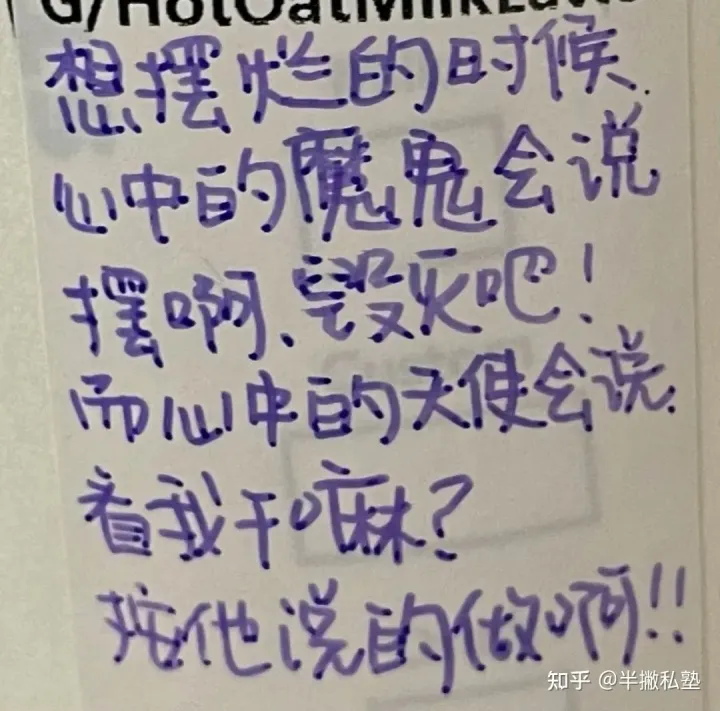 G/HotOatMilkLatte
想摆烂的时候.
心中的魔鬼会说
摆啊、毁灭吧!
而心中的天使会说.
看我干嘛?
按他说的做啊!!
知乎 @半撇私塾